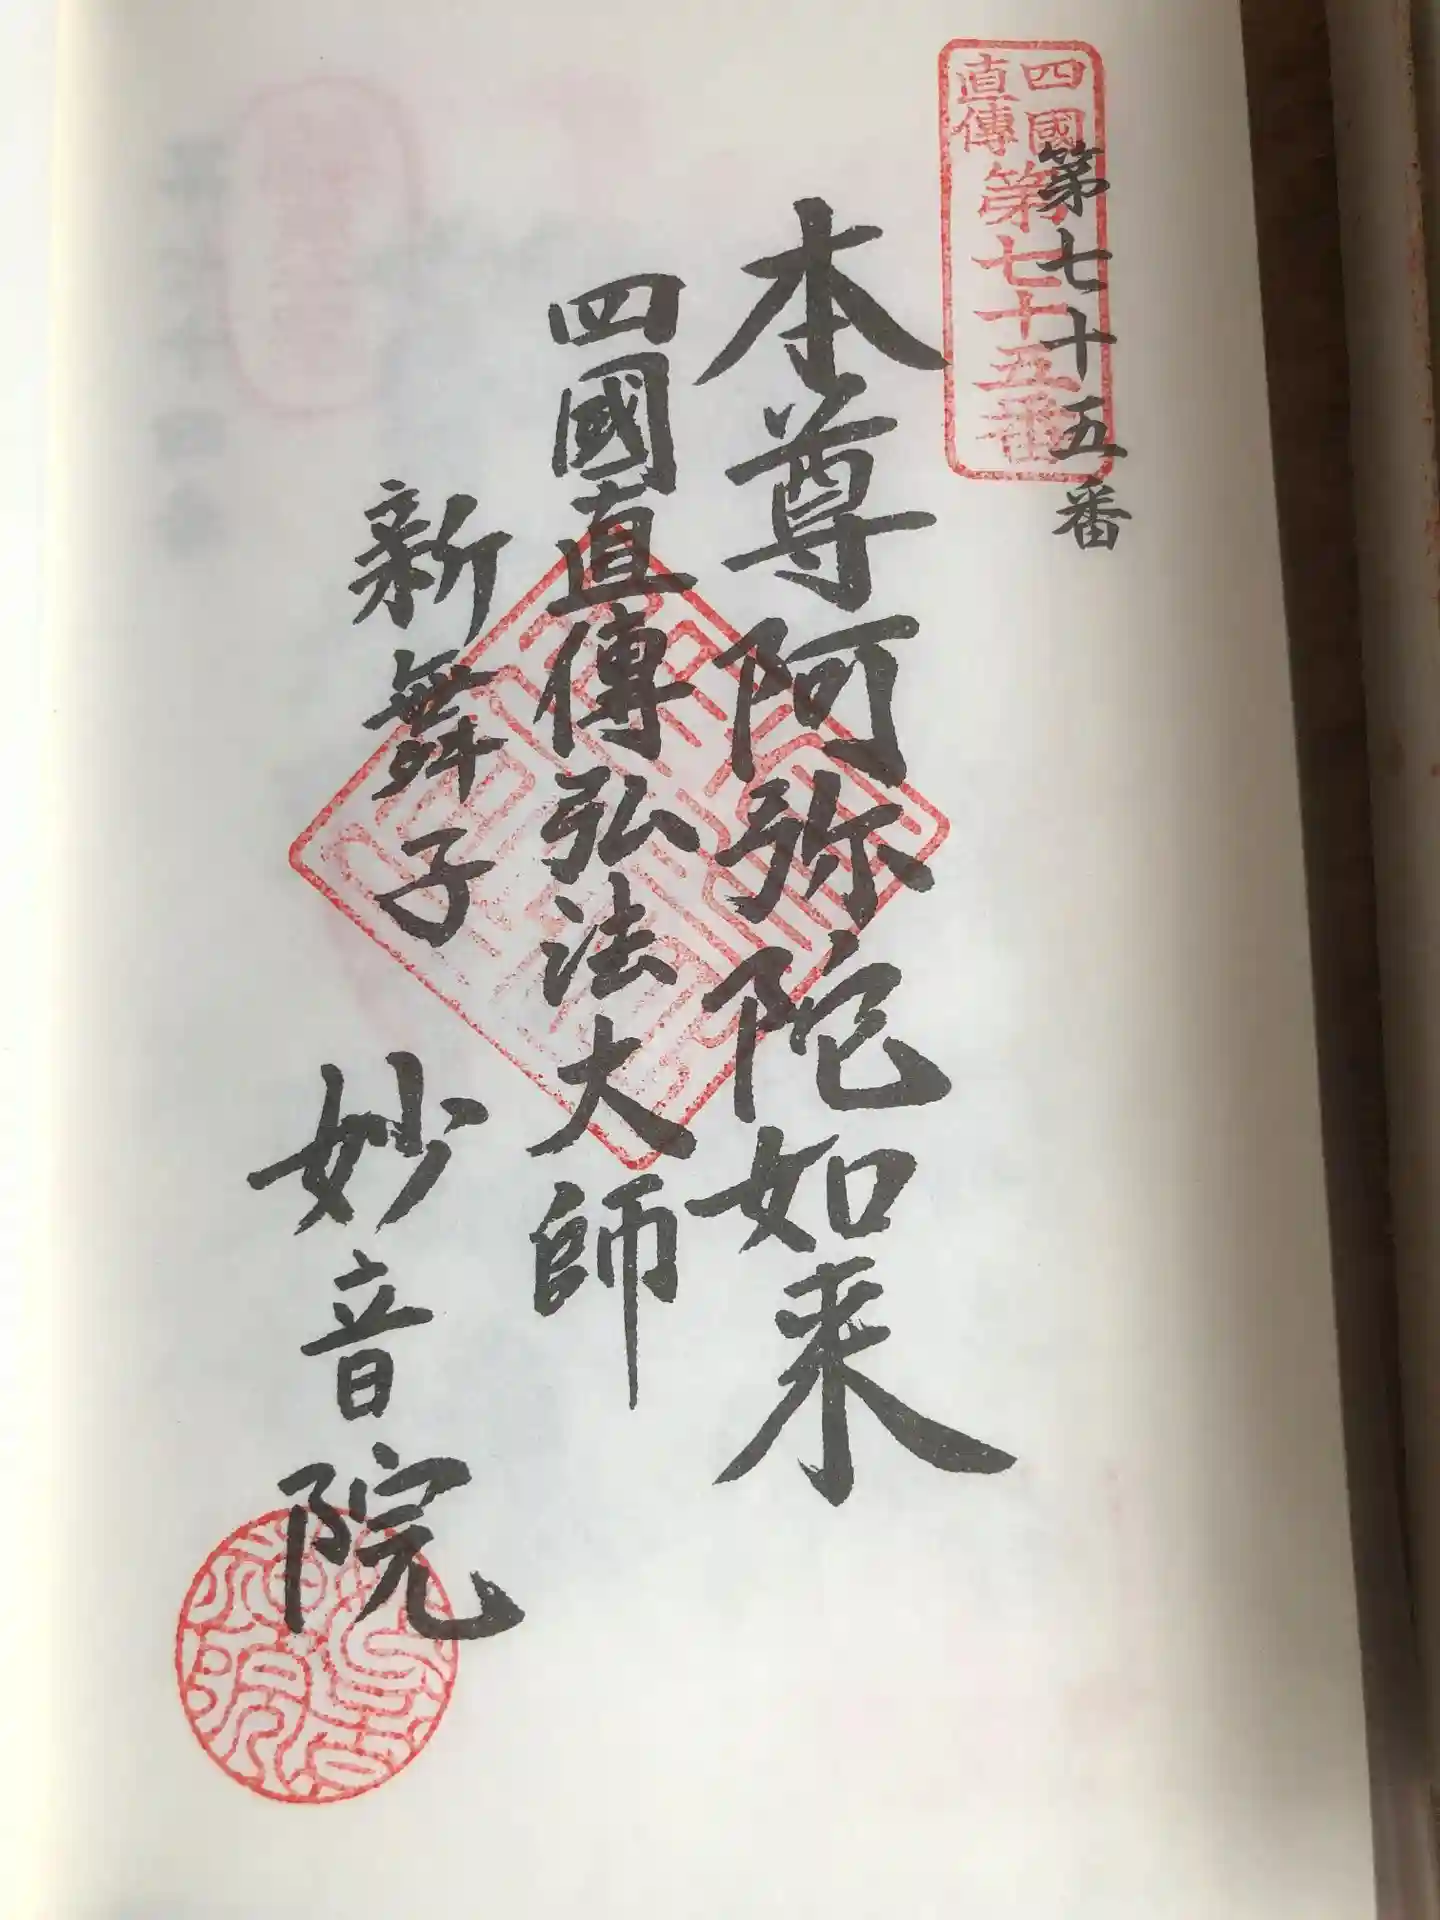 四國
直傳
第七十五番
第七十五番
本尊阿弥陀如来
四國直傳弘法大師
新舞子
妙音院